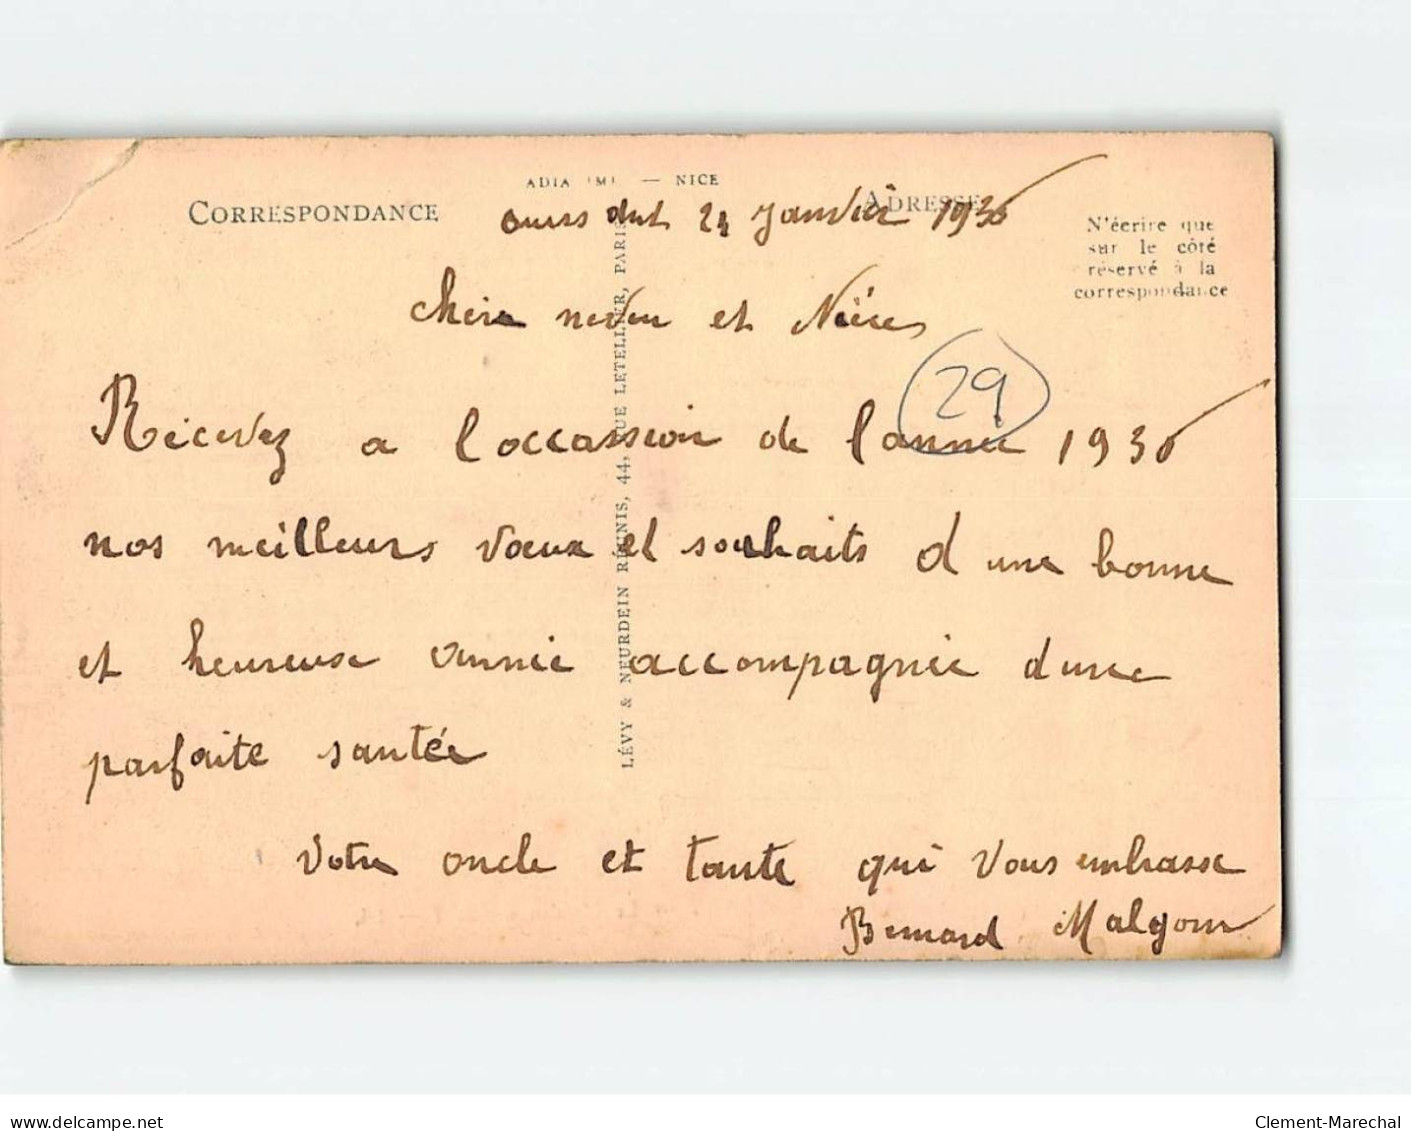 CORRESPONDANCE
— NICE
ADRESSE
24 Janvier 1936
N'écrire que
sur le côté
réservé à la
correspondance
Chers neveu et Nièces
29
Recevez a l'occassion de l'année 1936
nos meilleurs vœux et souhaits d une bonne
et heureuse année accompagnée dune
parfaite santée
Votre oncle et tante qui vous embrasse
Bernard
LÉVY & NEURDEIN RÉUNIS, 44, RUE LETELLIER, PARIS
www.delcampe.net
Clement-Marechal